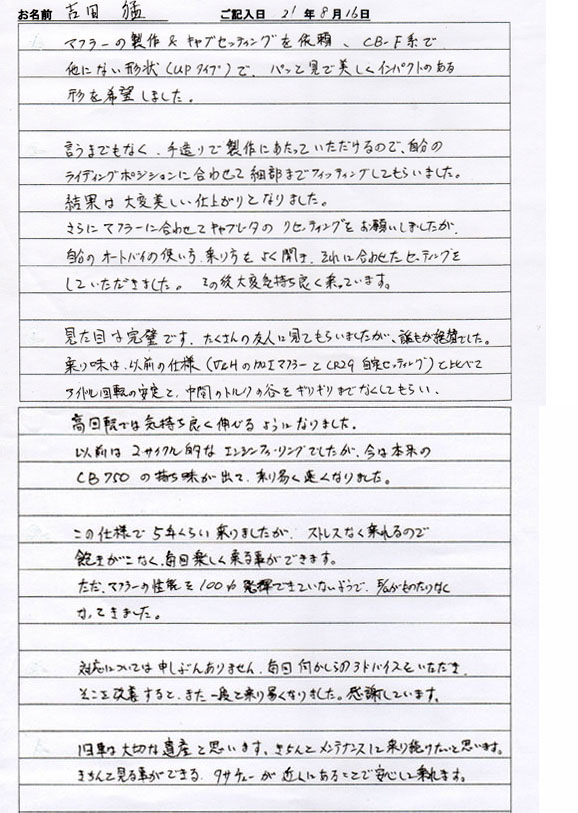 お名前 吉田 猛 ご記入日 21年8月16日
マフラーの製作&キャブセッティングを依頼、CB-F系で
他にない形状(UPタイプ)で、パッと見て美しくインパクトのある
形を希望しました。
言うまでもなく、手造りで製作にあたっていただけるので、自分の
ライディングポジションに合わせて細部までフィッティングしてもらいました。
結果は大変美しい仕上がりとなりました。
さらにマフラーに合わせてキャブレタのリセッティングをお願いしましたが、
自分のオートバイの使い方、乗り方をよく聞き、それに合わせたセッティングを
していただきました。その後大変気持ち良く乗っています。
見た目は完璧です。たくさんの友人に見てもらいましたが、誰もが絶賛でした。
乗り味は、以前の仕様(の加工マフラーとCR29 自宅セッティング)と比べて
アイドル回転の安定と、中間のトルクの谷をギリギリまでなくしてもらい、
高回転では気持ち良く伸びるようになりました。
以前は2サイクル的なエンジンフィーリングでしたが、今は本来の
CB750の持ち味が出て、乗り易く速くなりました。
この仕様で5年くらい乗りましたが、ストレスなく乗れるので
飽きがこなく、毎回楽しく乗る事ができます。
ただ、マフラーの性能を100%発揮できていないようで、ものたりなく
なってきました。
対応については申しぶんありません。毎回何かしらのアドバイスをいただき、
そこを改善すると、また一段と乗り易くなりました。感謝しています。
旧車は大切な遺産と思います。きちんとメンテナンスして乗り続けたいと思います。
きちんと見る事ができる、が近くにあることで安心して乗れます。